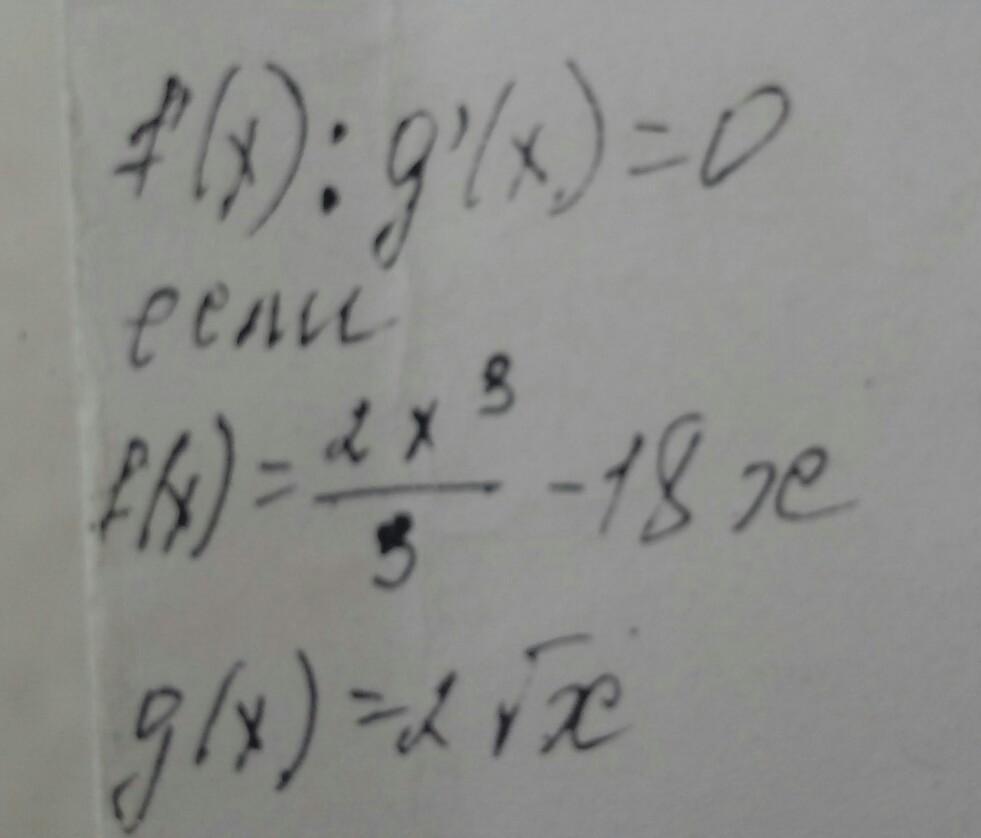 f'(x) : g'(x) = 0
если
f(x) = \frac{2x^3}{3} - 18x
g(x) = 2\sqrt{x}